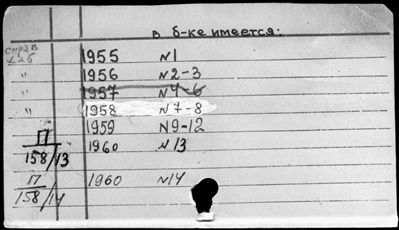 в б-ке имеется:
1955 N1
" 1956 N2-3
" 1957 N4-6
" 1958 N7-8
1959 N9-12
П 158/13 1960 N13
П 158/14 1960 N14